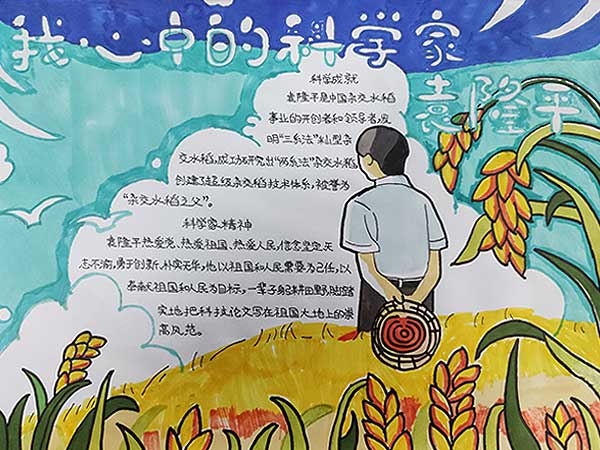 我心中的科学家
袁隆平
科学成就
袁隆平是中国杂交水稻
事业的开创者和领导者,发
明"三系法"籼型杂
交水稻,成功研究出"两系法"杂交水稻,
创建了超级杂交稻技术体系,被誉为
"杂交水稻之父"。
科学家精神
袁隆平热爱党、热爱祖国、热爱人民,信念坚定,矢
志不渝,勇于创新、朴实无华,他以祖国和人民需要为己任,以
奉献祖国和人民为目标,一辈子躬耕田野,脚踏
实地把科技论文写在祖国大地上的崇
高风范。